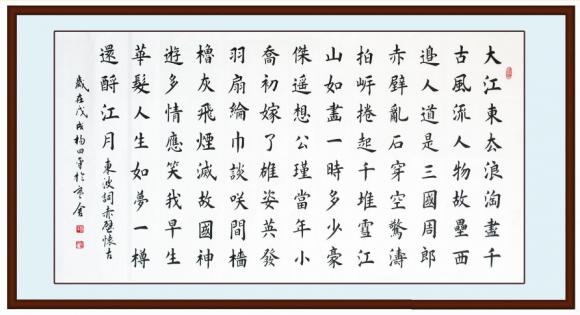 大江東去浪淘盡千
古風流人物故壘西
邉人道是三國周郎
赤壁亂石穿空驚濤
拍岍捲起千堆雪江
山如畫一時多少豪
傑遥想公瑾當年小
喬初嫁了雄姿英發
羽扇綸巾談咲間檣
櫓灰飛煙滅故國神
遊多情應笑我早生
華髮人生如夢一樽
還酹江月 東波詞赤壁懷古
歲在戊戌楊四平於